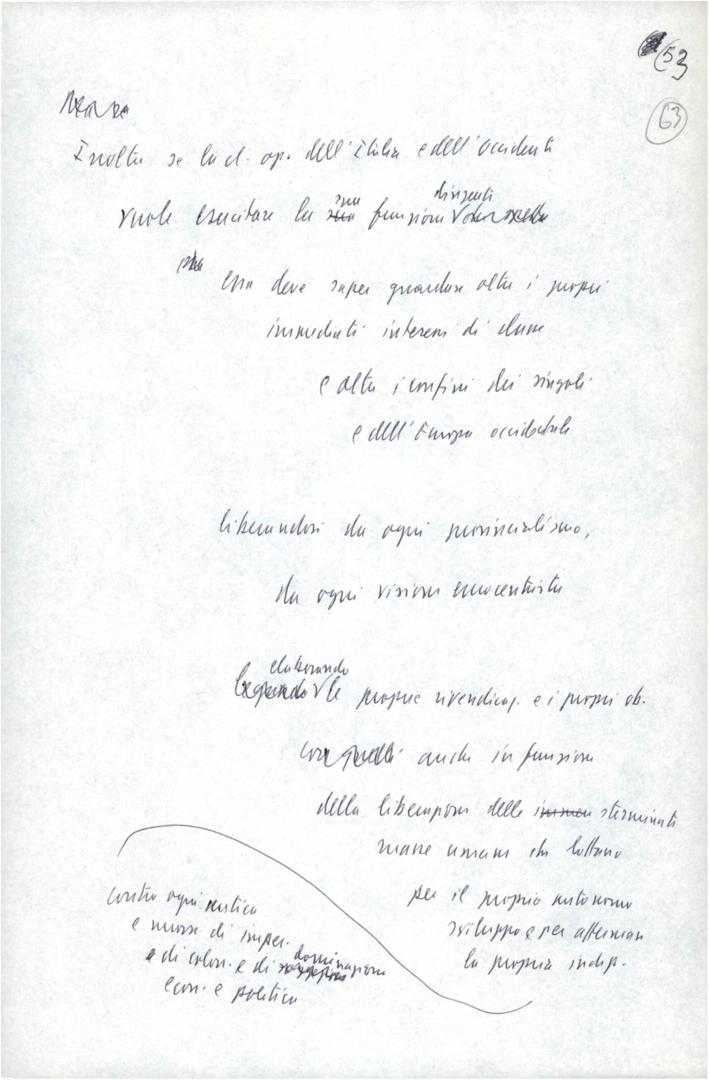 53
63
Inoltre se la cl. op. dell'Italia e dell'Occidente
vuole esercitare la sua funzione dirigente
essa deve saper guardare oltre i propri
immediati interessi di classe
e oltre i confini dei singoli
e dell'Europa occidentale
liberandosi da ogni provincialismo,
da ogni visione eurocentrista
elaborando le proprie rivendicaz. e i propri ob.
anche in funzione
della liberazione delle sterminate
masse umane che lottano
per il proprio autonomo
sviluppo e per affermare
la propria indip.
contro ogni antica
e nuova di imper.
e di colon. e di dominazione
econ. e politica